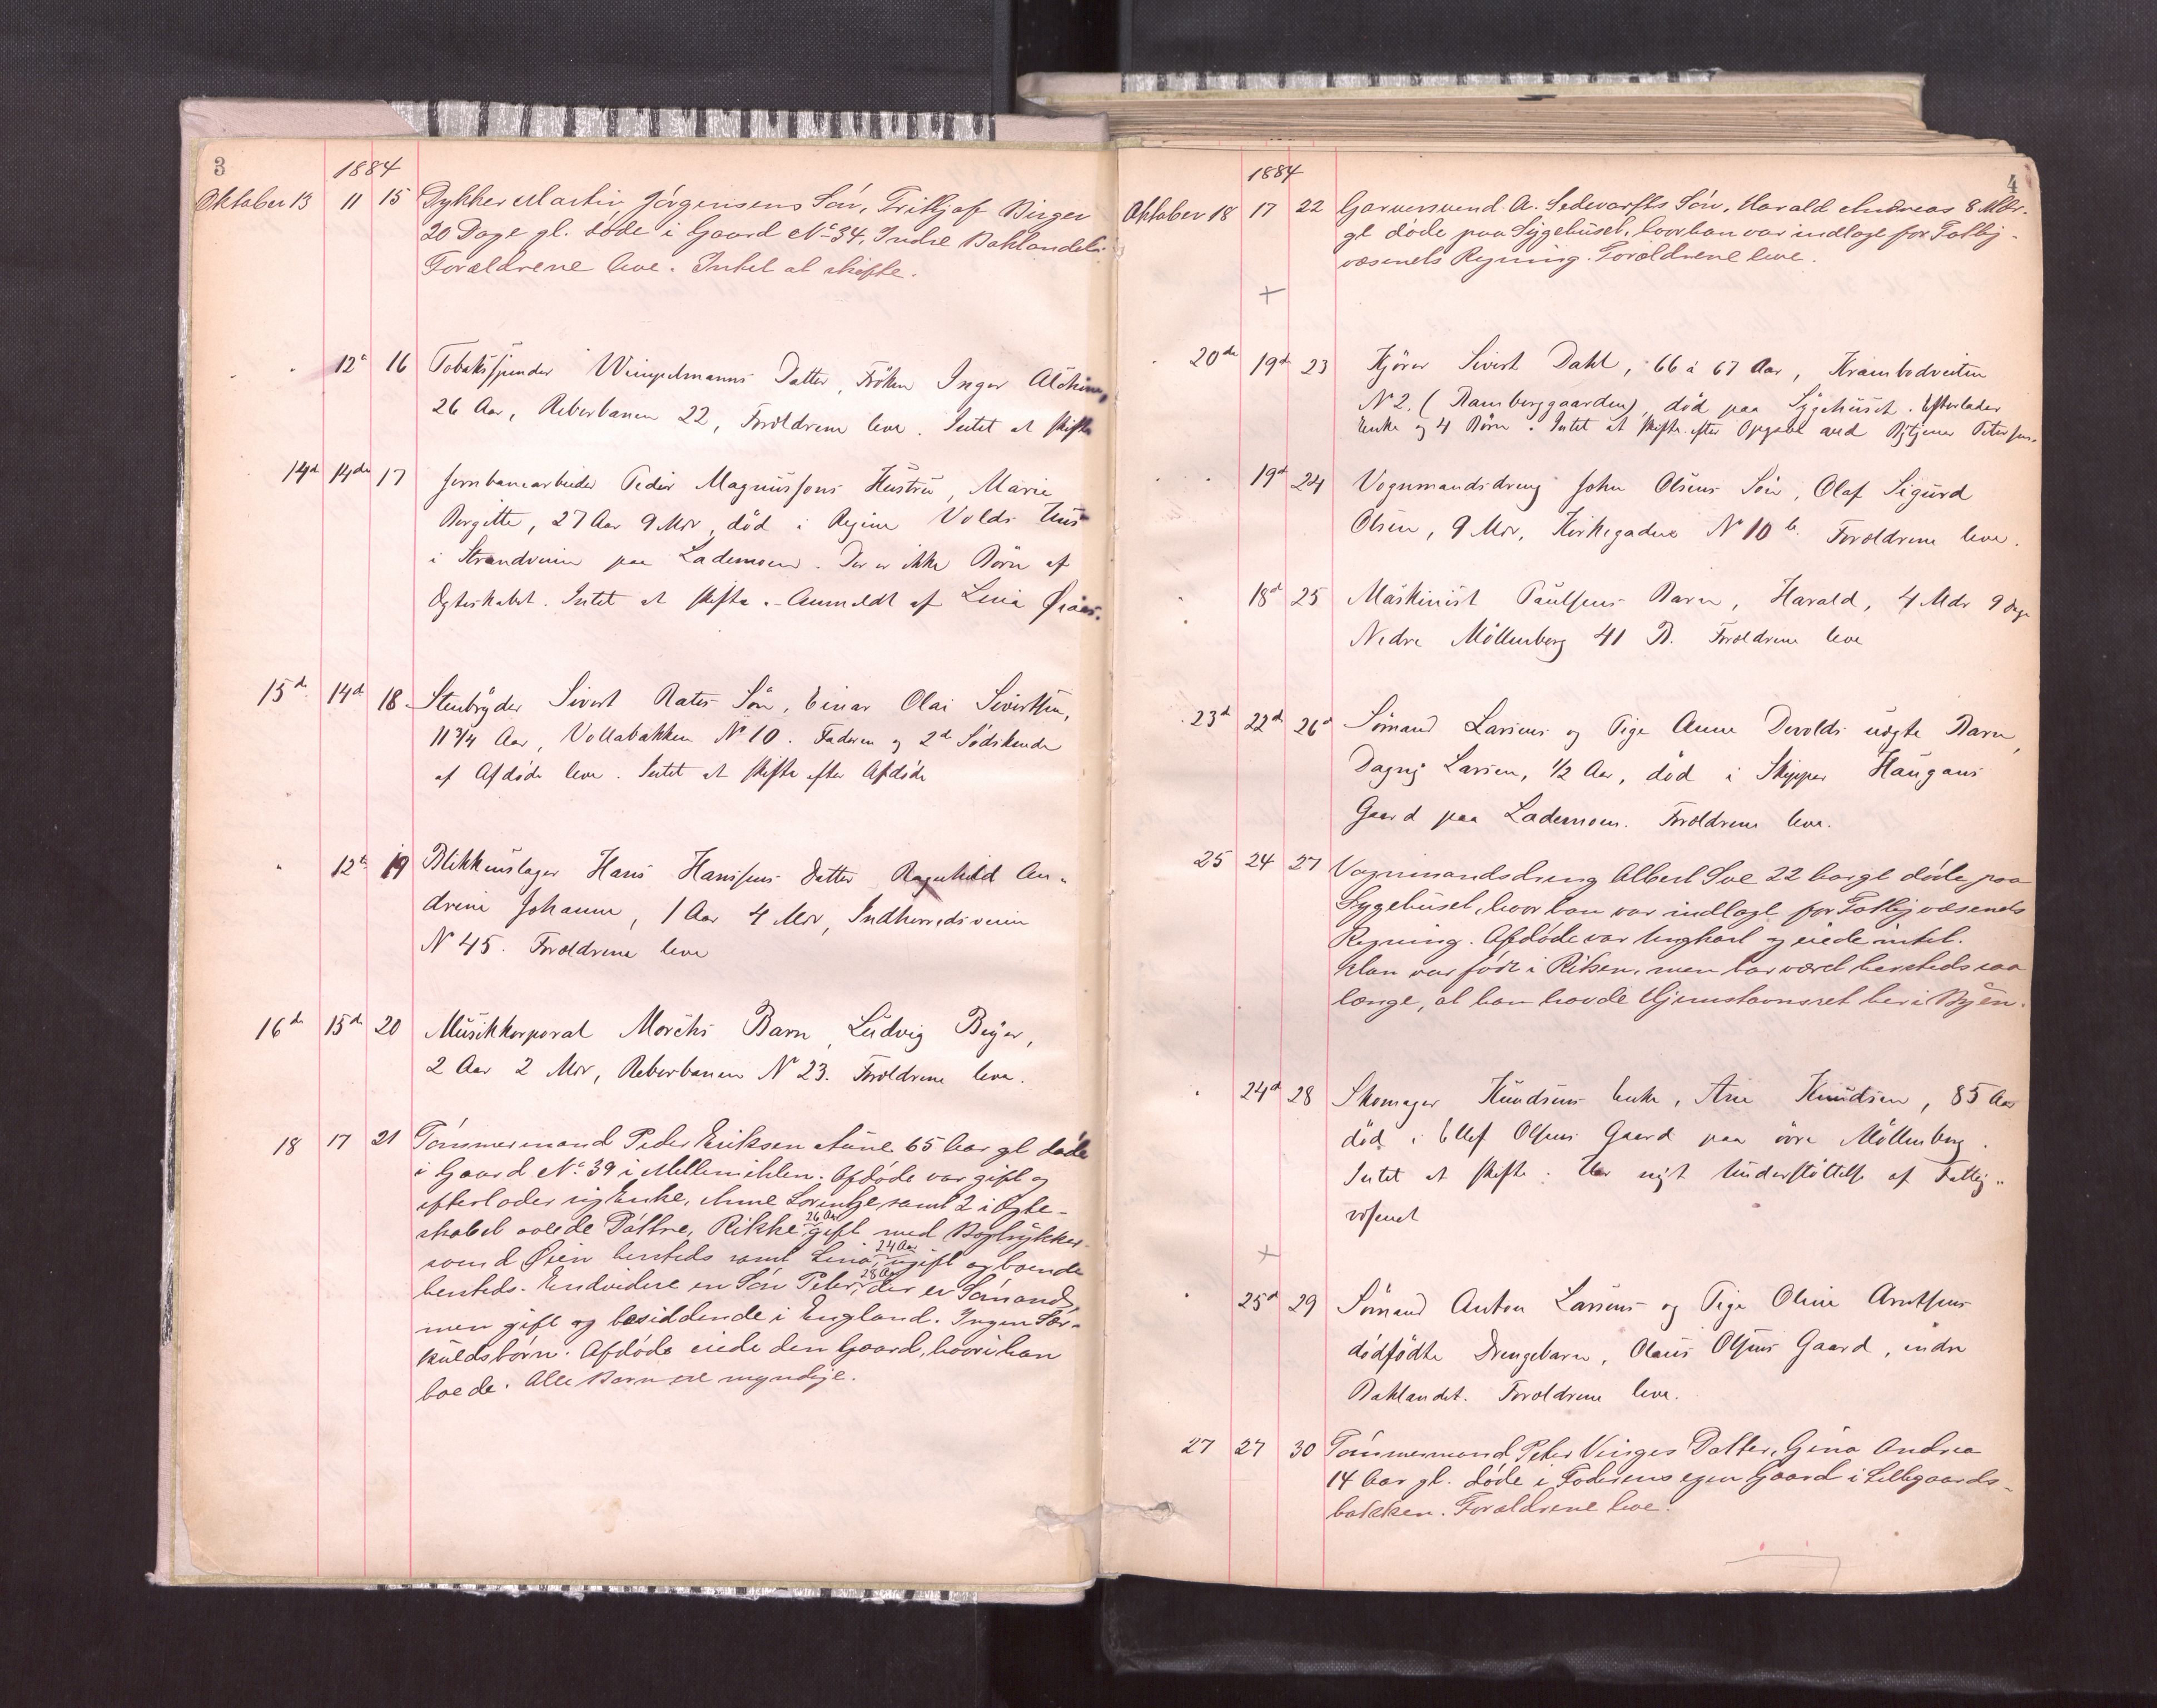 3
1884
Oktober 13 11 15 Dykker Martin Jörgensens Sön, Fritjof Birger
20 Dage gl. döde i Gaard No 34, Indre Baklandet.
Forældrene leve. Intet at skifte.
" " 12te 16 Tobaksspinder Wimpelmanns Datter, Fröken Inger
26 Aar, Reberbanen 22, Forældrene leve. Intet at skifte
14de 14de 17 Jernbanearbeider Peder Magnussons Hustru, Marie
Bergitte, 27 Aar 9 Mdr, död i Regine Volds Hus
i Strandveien paa Lademoen. Der er ikke Börn af
Ægteskabet. Intet at skifte. - Anmeldt af Lina
15de 14de 18 Stenbryder Sivert Rates Sön, Einar Olai Sivertsen,
11 3/4 Aar, Vollabakken No 10. Faderen og 2de Södskende
af Afdöde leve. Intet at skifte efter Afdöde
" 12te 19 Blikkenslager Hans Hanssens Datter Ragnhild An-
drine Johanne, 1 Aar 4 Mdr, Indherredsveien
No 45. Forældrene leve
16de 15de 20 Musikkorporal Morchs Barn, Ludvig Beyer,
2 Aar 2 Mdr, Reberbanen No 23. Forældrene leve.
18 17 21 Tömmermand Peder Eriksen Aune 65 Aar gl. döde
i Gaard No 39 i Mellemihlen. Afdöde var gift og
efterlader sig Enke, Anne Lorentze samt 2 i Ægte-
skabet avlede Döttre, Rikke 26 Aar gift med Bogtrykker-
svend Öien hersteds samt Lina, 24 Aar ugift og boende
hersteds. Endvidere en Sön Peter, 28 Aar der er Sömand,
men gift og bosiddende i England. Ingen Sær-
kuldsbörn. Afdöde eiede den Gaard, hvori han
boede. Alle Börn ere myndige.
4
1884
Oktober 18 17 22 Garversvend A. Sedevarfts Sön, Harald Andreas 8 Mdr.
gl. döde paa Sygehuset, hvor han var indlagt for Fattig-
væsenets Regning. Forældrene leve.
+
20de 19de 23 Kjörer Sivert Dahl, 66 à 67 Aar, Krambodveiten
No 2. (Ramberggaarden), död paa Sygehuset. Efterlader
Enke og 4 Börn. Intet at skifte efter Opgave ved Petersen.
" " 19de 24 Vognmandsdreng John Olsens Sön, Olaf Sigurd
Olsen, 9 Mdr, Kirkegaden No 10 b. Forældrene leve.
" 18de 25 Maskinist Paulsens Barn, Harald, 4 Mdr 9 Dage
" Nedre Möllenberg 41 B. Forældrene leve
23de 22de 26 Sömand Larsens og Pige Anne Devolds uægte Barn,
Dagny Larsen, 1/2 Aar, död i Skipper Haugans
Gaard paa Lademoen. Forældrene leve.
25 24 27 Vognmandsdreng Albert Soe 22 Aar gl. döde paa
Sygehuset, hvor han var indlagt for Fattigvæsenets
Regning. Afdöde var Ungkarl og eiede intet.
Han var född i Risen, men har været hersteds saa
længe, at han havde Hjemstavnsret her i Byen.
" 24de 28 Skomager Knudsens Enke, Ane Knudsen, 85 Aar
död i Ellef Olsens Gaard paa övre Möllenberg.
Intet at skifte. Har nydt Understöttelse af Fattig-
væsenet
+
" 25de 29 Sömand Anton Larsens og Pige Oline Arntsens
dödfödte Drengebarn, Olaus Olsens Gaard, indre
Baklandet. Forældrene leve.
27 27 30 Tömmermand Peter Vinges Datter, Gina Andrea
14 Aar gl. döde i Faderens egen Gaard i Lillegaards-
bakken. Forældrene leve.